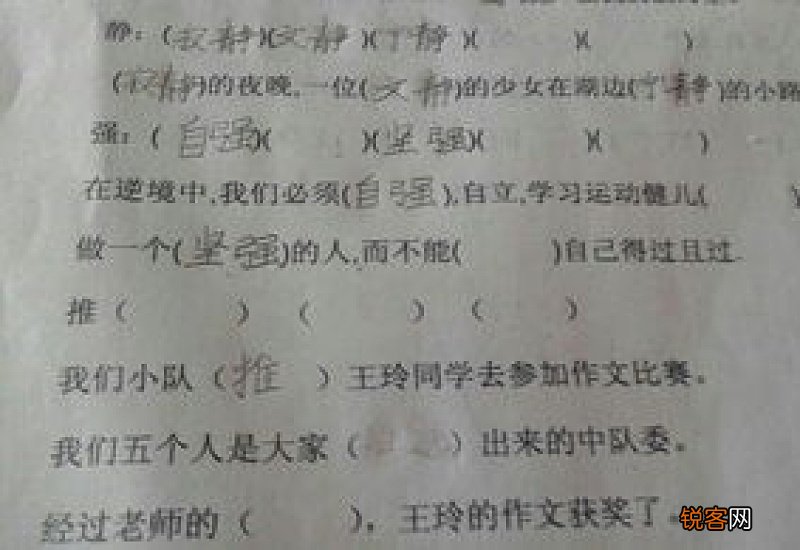 静：（寂静）（文静）（宁静）（　　）（　　）
（寂静）的夜晚,一位（文静）的少女在湖边（宁静）的小路
强：（自强）（　　）（坚强）（　　）（　　）
在逆境中,我们必须（自强）,自立,学习运动健儿（　　）
做一个（坚强）的人,而不能（　　）自己得过且过.
推（　　）（　　）（　　）
我们小队（推　）王玲同学去参加作文比赛。
我们五个人是大家（　　）出来的中队委。
经过老师的（　　），王玲的作文获奖了。
锐客网